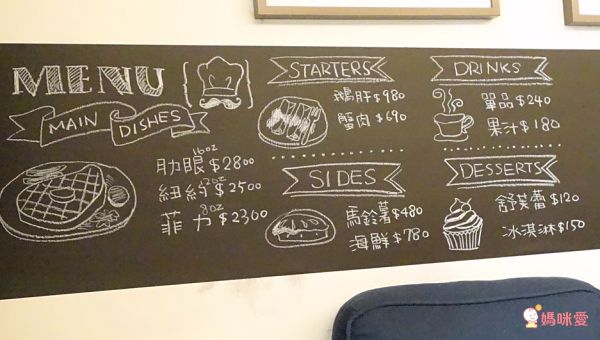 MENU
MAIN DISHES
16oz
肋眼 $2800
12oz
紐約 $2500
8oz
菲力 $2300
STARTERS
鵝肝 $980
蟹肉 $690
SIDES
馬鈴薯 $480
海鮮 $780
DRINKS
單品 $240
果汁 $180
DESSERTS
舒芙蕾 $120
冰淇淋 $150
媽咪愛